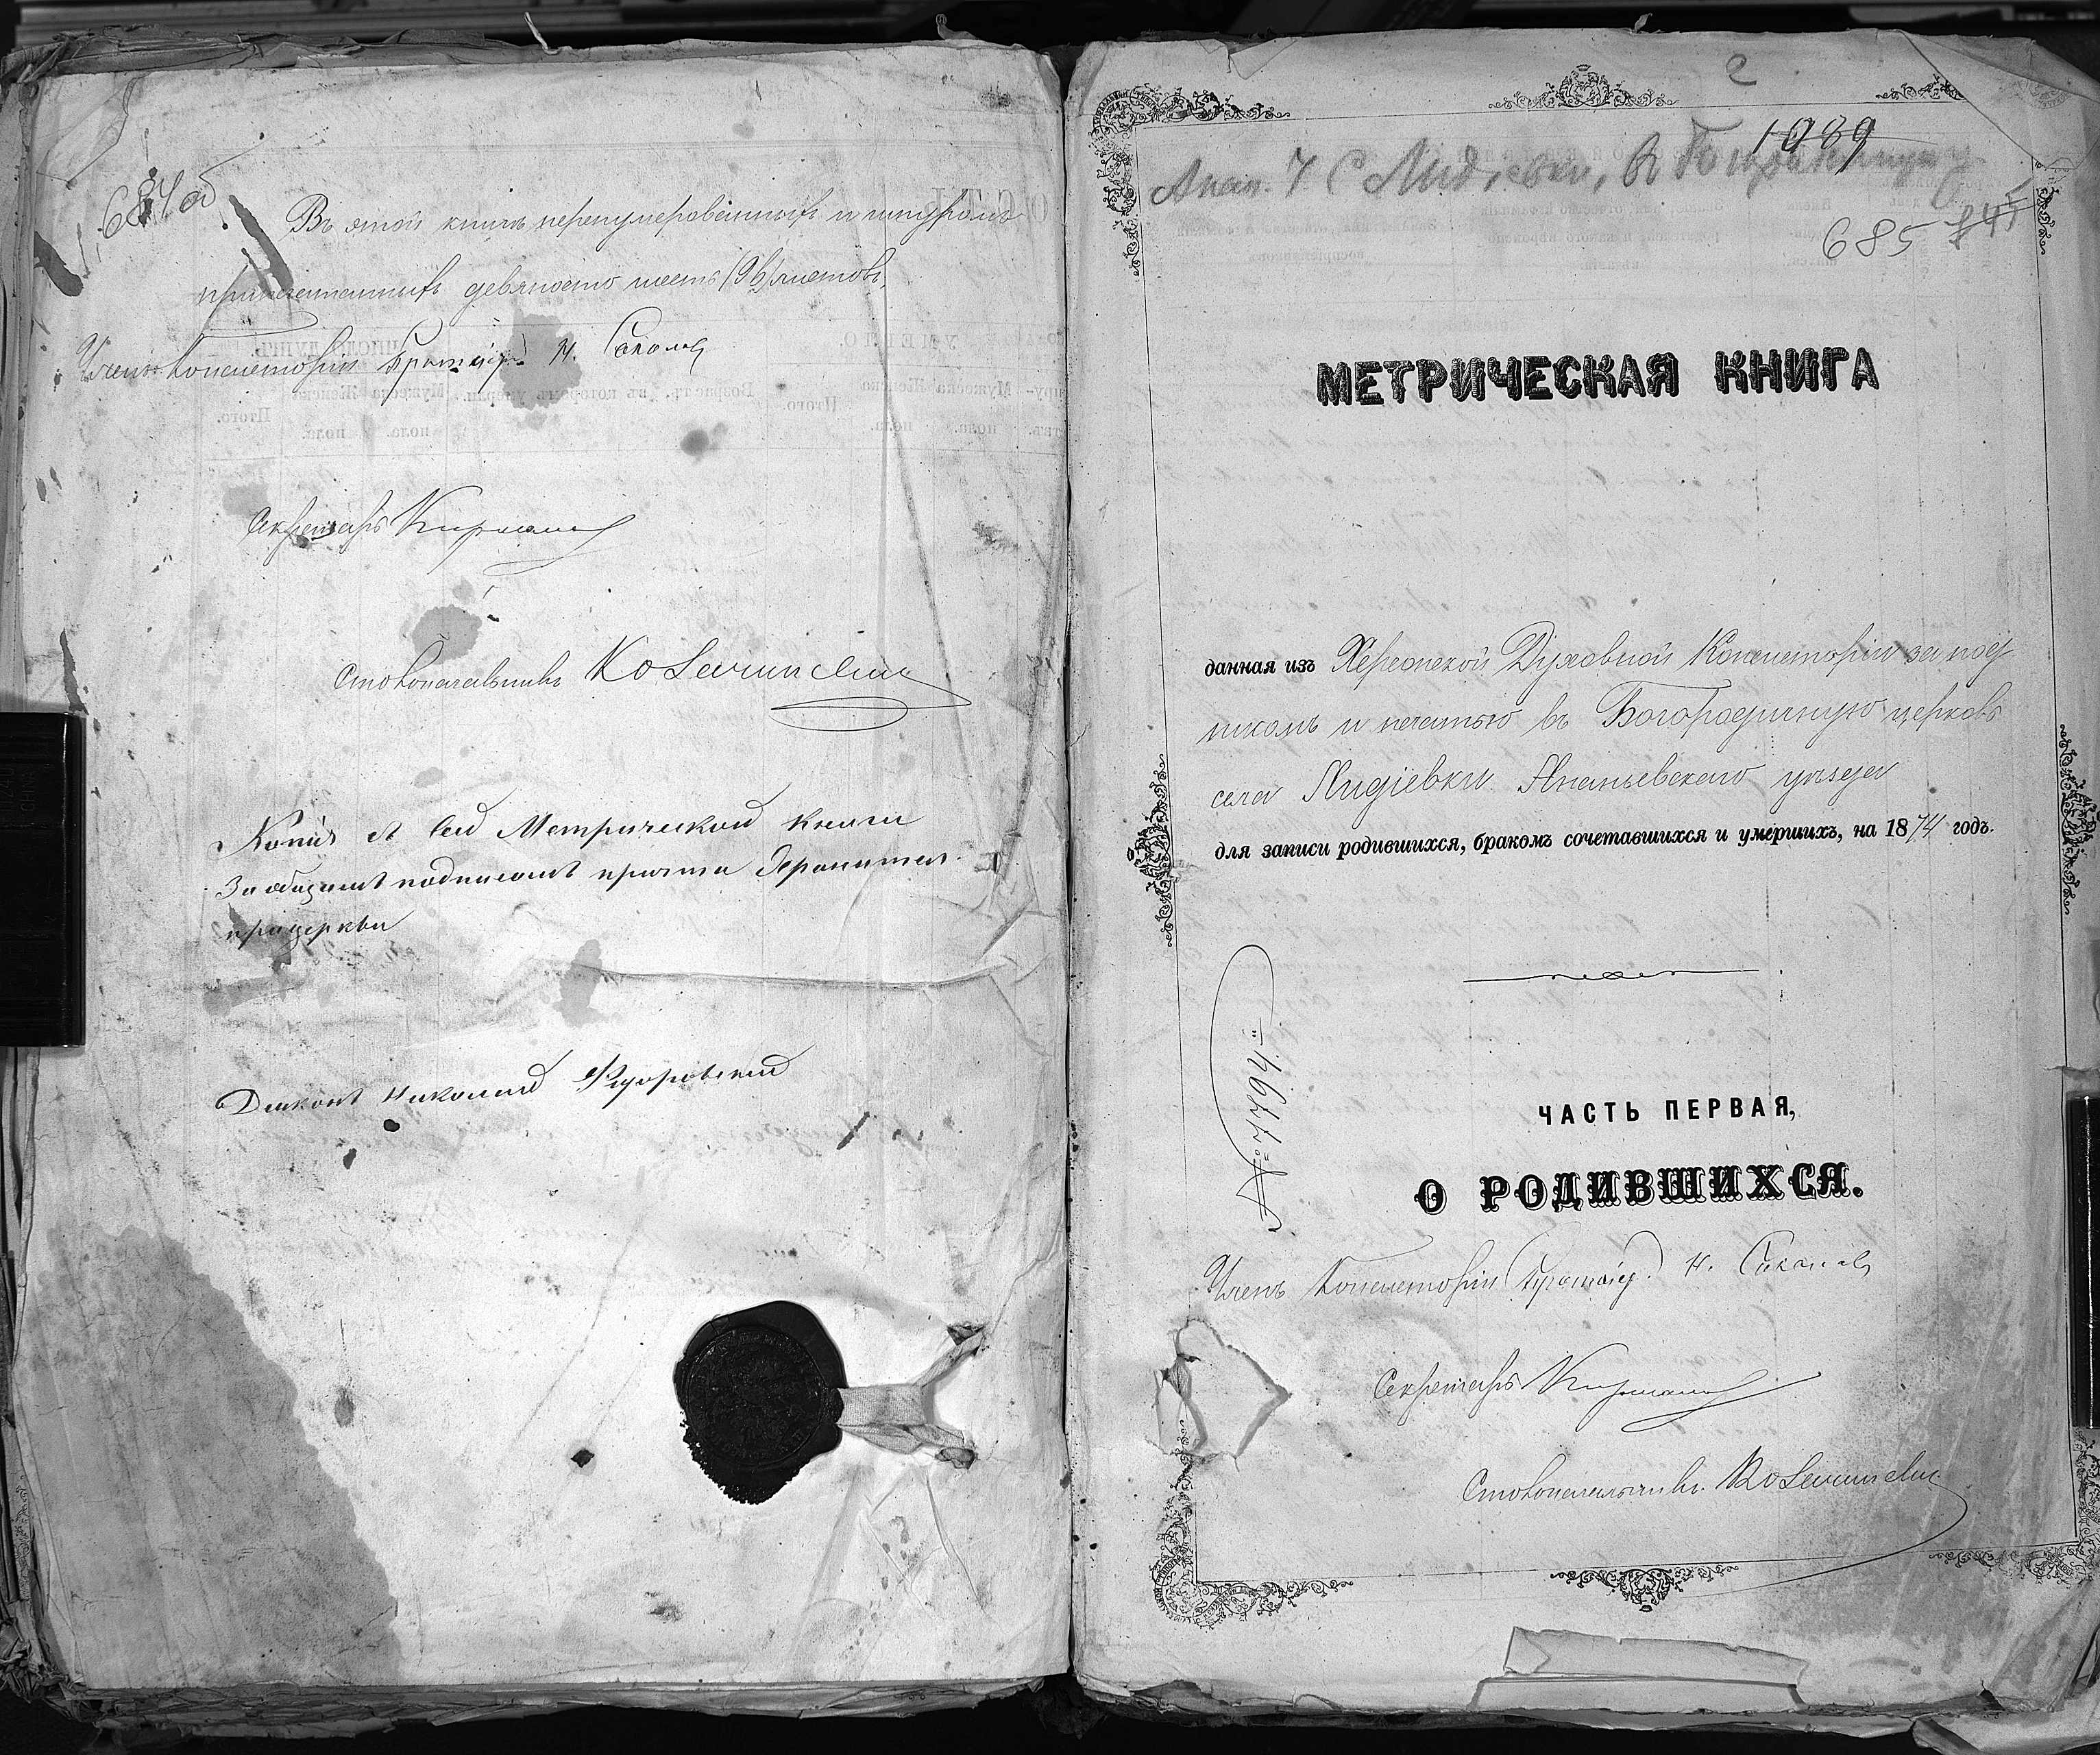 684об
Въ этой книгѣ перенумерованныхъ и шнуромъ
припечатанныхъ девяносто шесть (96) листовъ.
Членъ Консисторіи Протоіер. Н. Соколов
Секретарь
Столоначальникъ
Копія съ сей Метрической книги
За общимъ подписомъ причта хранится
при церкви
Діаконъ Николай Ѳедоровскій
2
1089
Анан. У С Лид
685
МЕТРИЧЕСКАЯ КНИГА
данная изъ Херсонской Духовной Консисторіи за под-
писомъ и печатью въ Богородичную церковь
села Лидіевки Ананьевскаго уѣзда
для записи родившихся, бракомъ сочетавшихся и умершихъ, на 1874 годъ.
№ 7794.
ЧАСТЬ ПЕРВАЯ,
О РОДИВШИХСЯ.
Членъ Консисторіи Протоіер. Н. Соколов
Секретарь
Столоначальникъ